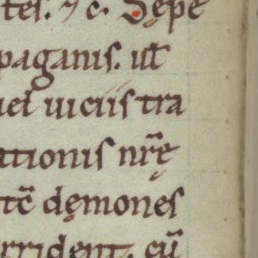 tes. ⁊ c. Sepe
paganis. ul̄
uel uiciis tra
ationis nr̄ę
tē demones
rrident. cū